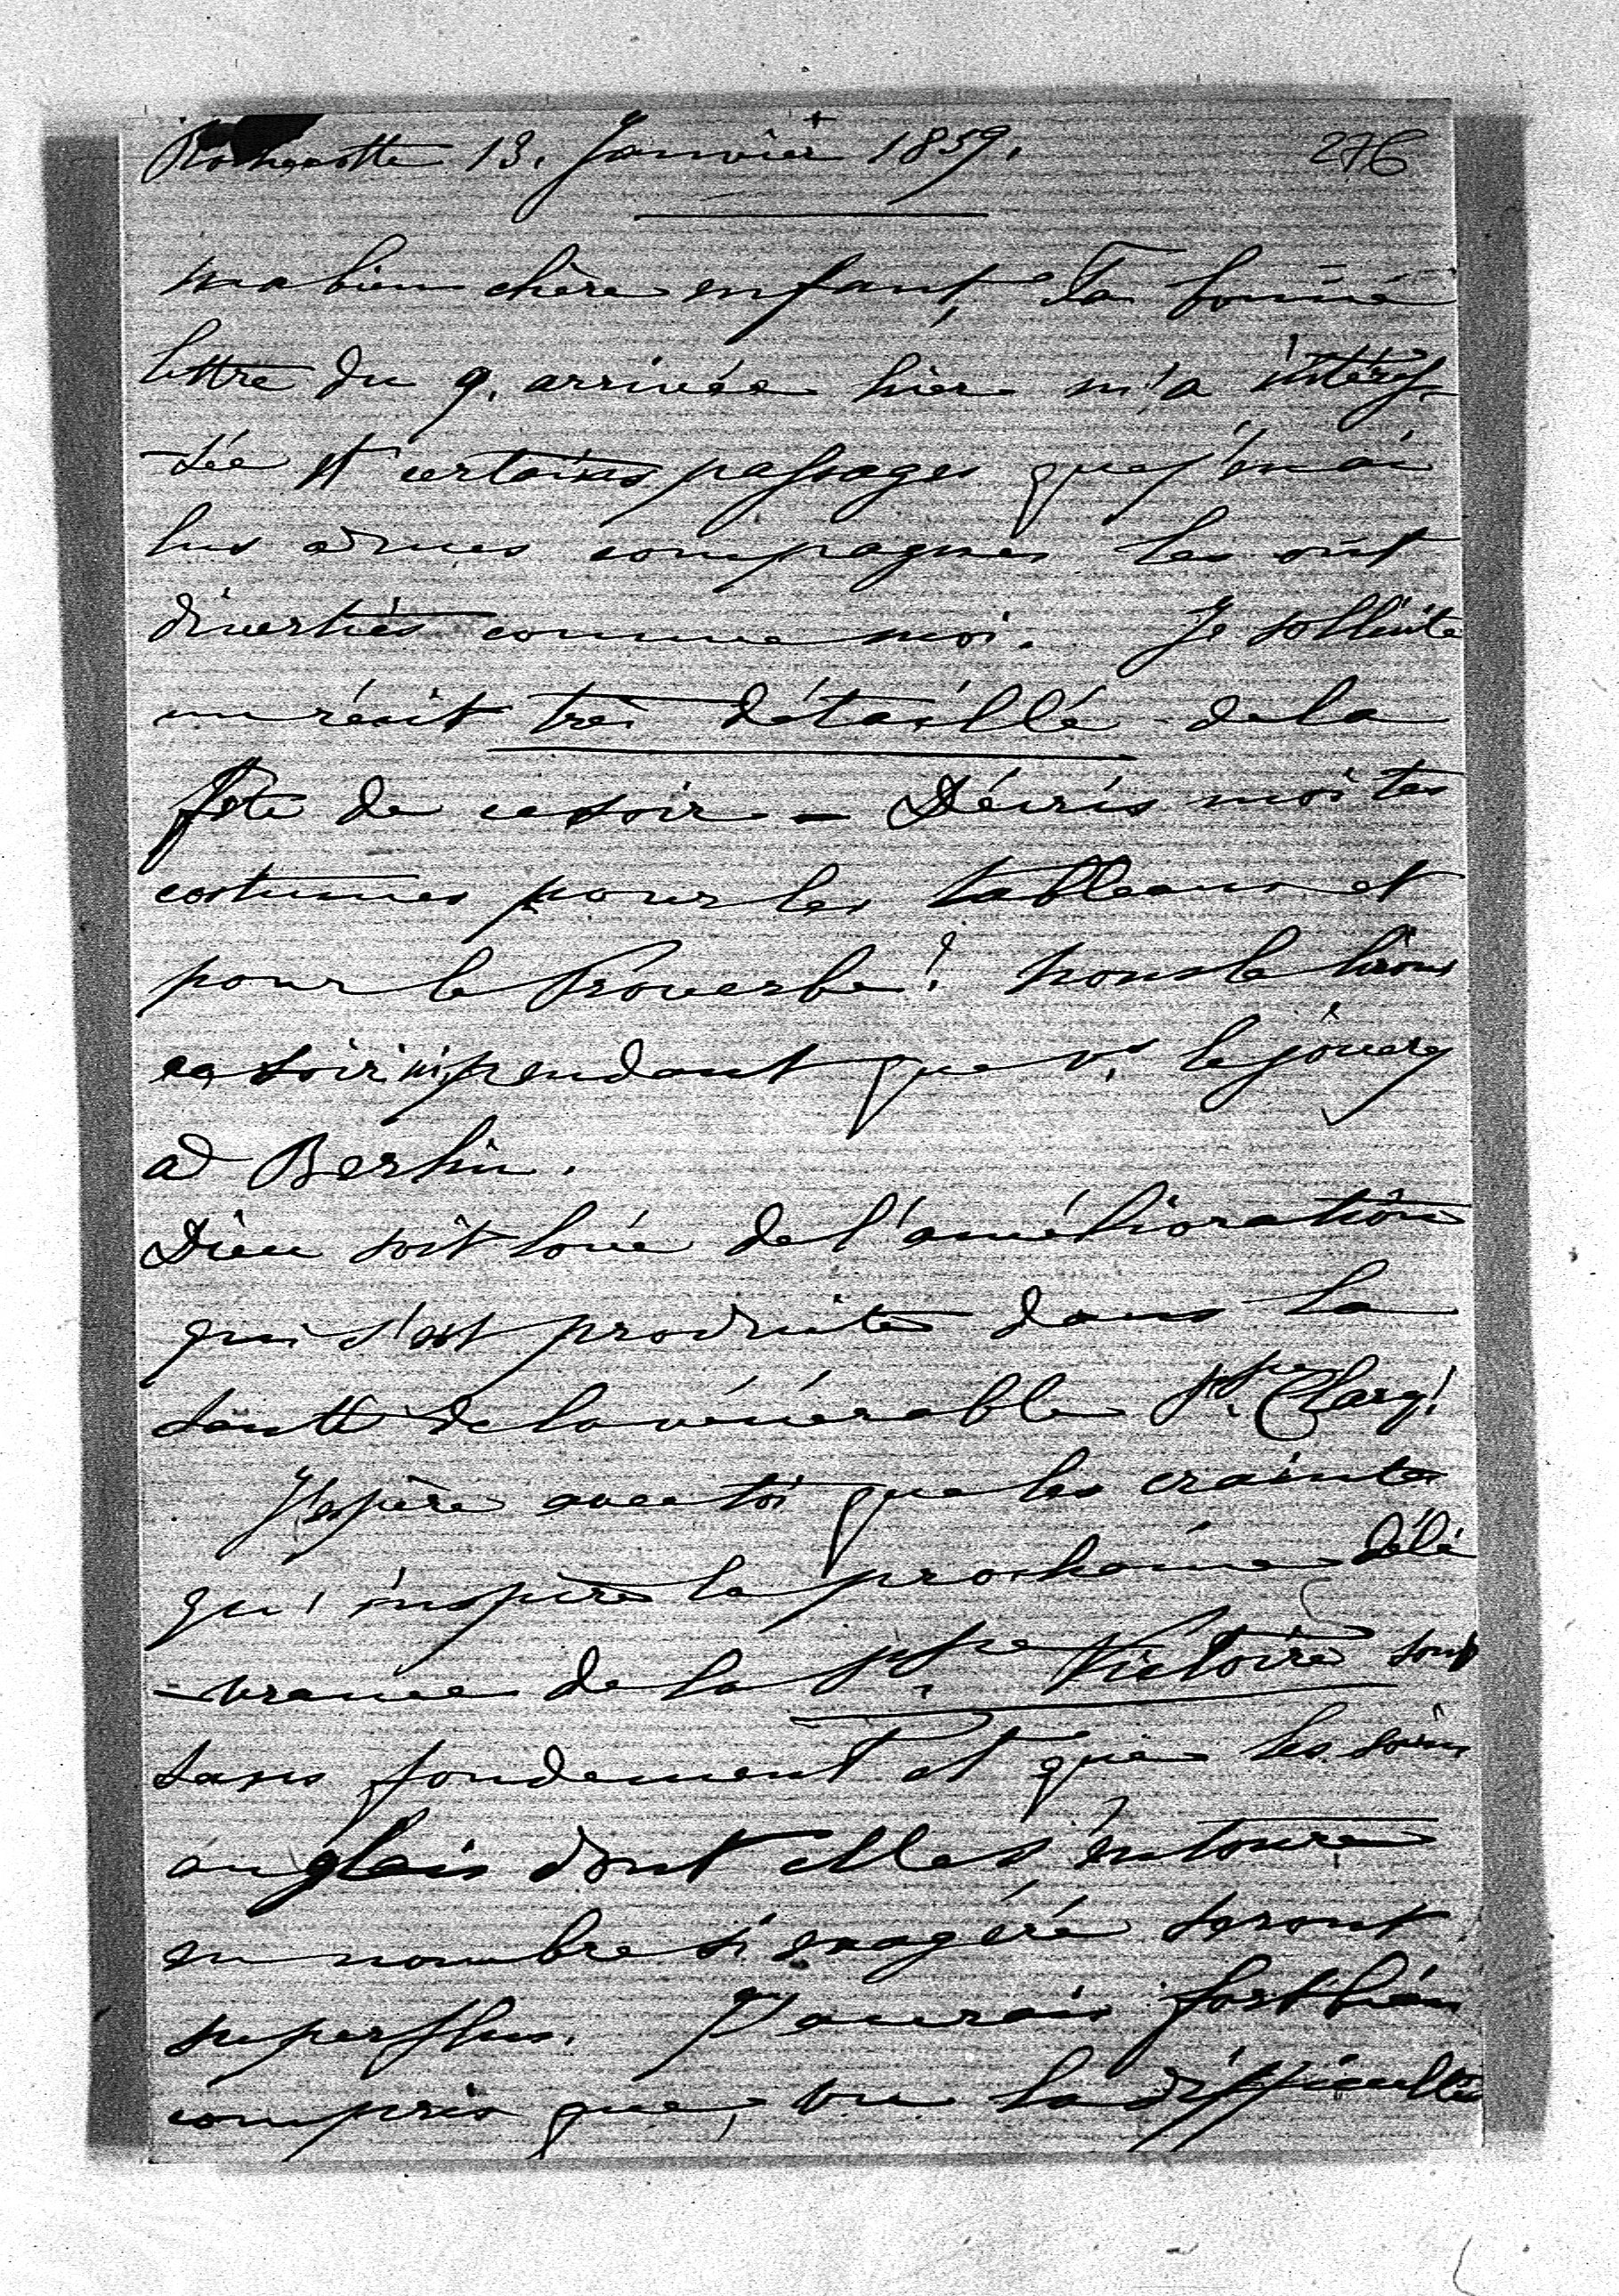 Rochecotte 13. Janvier 1859. 276
ma bien chère enfant, Ta bonne
lettre du 9. arrivée hier m'a intéres-
-sée et certains passages que j'en ai
lus à mes compagnes les ont
diverties comme moi. Je sollicite
un récit très détaillé de la
fête de ce soir. – Décris moi tes
costumes pour les tableaux et
pour le Proverbe! nous le lirons
ce soir ici, pendant que vs le jouerez
à Berlin.
Dieu soit loué de l'amélioration
qui s'est produite dans la
santé de la vénérable Psse Charg!
J'espère avec toi que les craintes
qu'inspire la prochaine déli
-vrance de la Psse Victoire sont
sans fondement et que les soins
anglais dont elle s'entoure
en nombre si exagéré seront
superflus. J'aurais fort bien
compris que, vu la difficulté